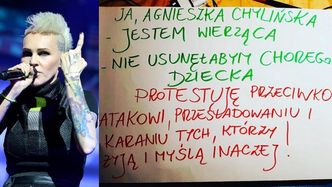 JA, AGNIESZKA CHYLIŃSKA
- JESTEM WIERZĄCA
- NIE USUNĘŁABYM CHOREGO
DZIECKA
PROTESTUJĘ PRZECIWKO
ATAKOWI, PRZEŚLADOWANIU I
KARANIU TYCH, KTÓRZY
ŻYJĄ I MYŚLĄ INACZEJ.